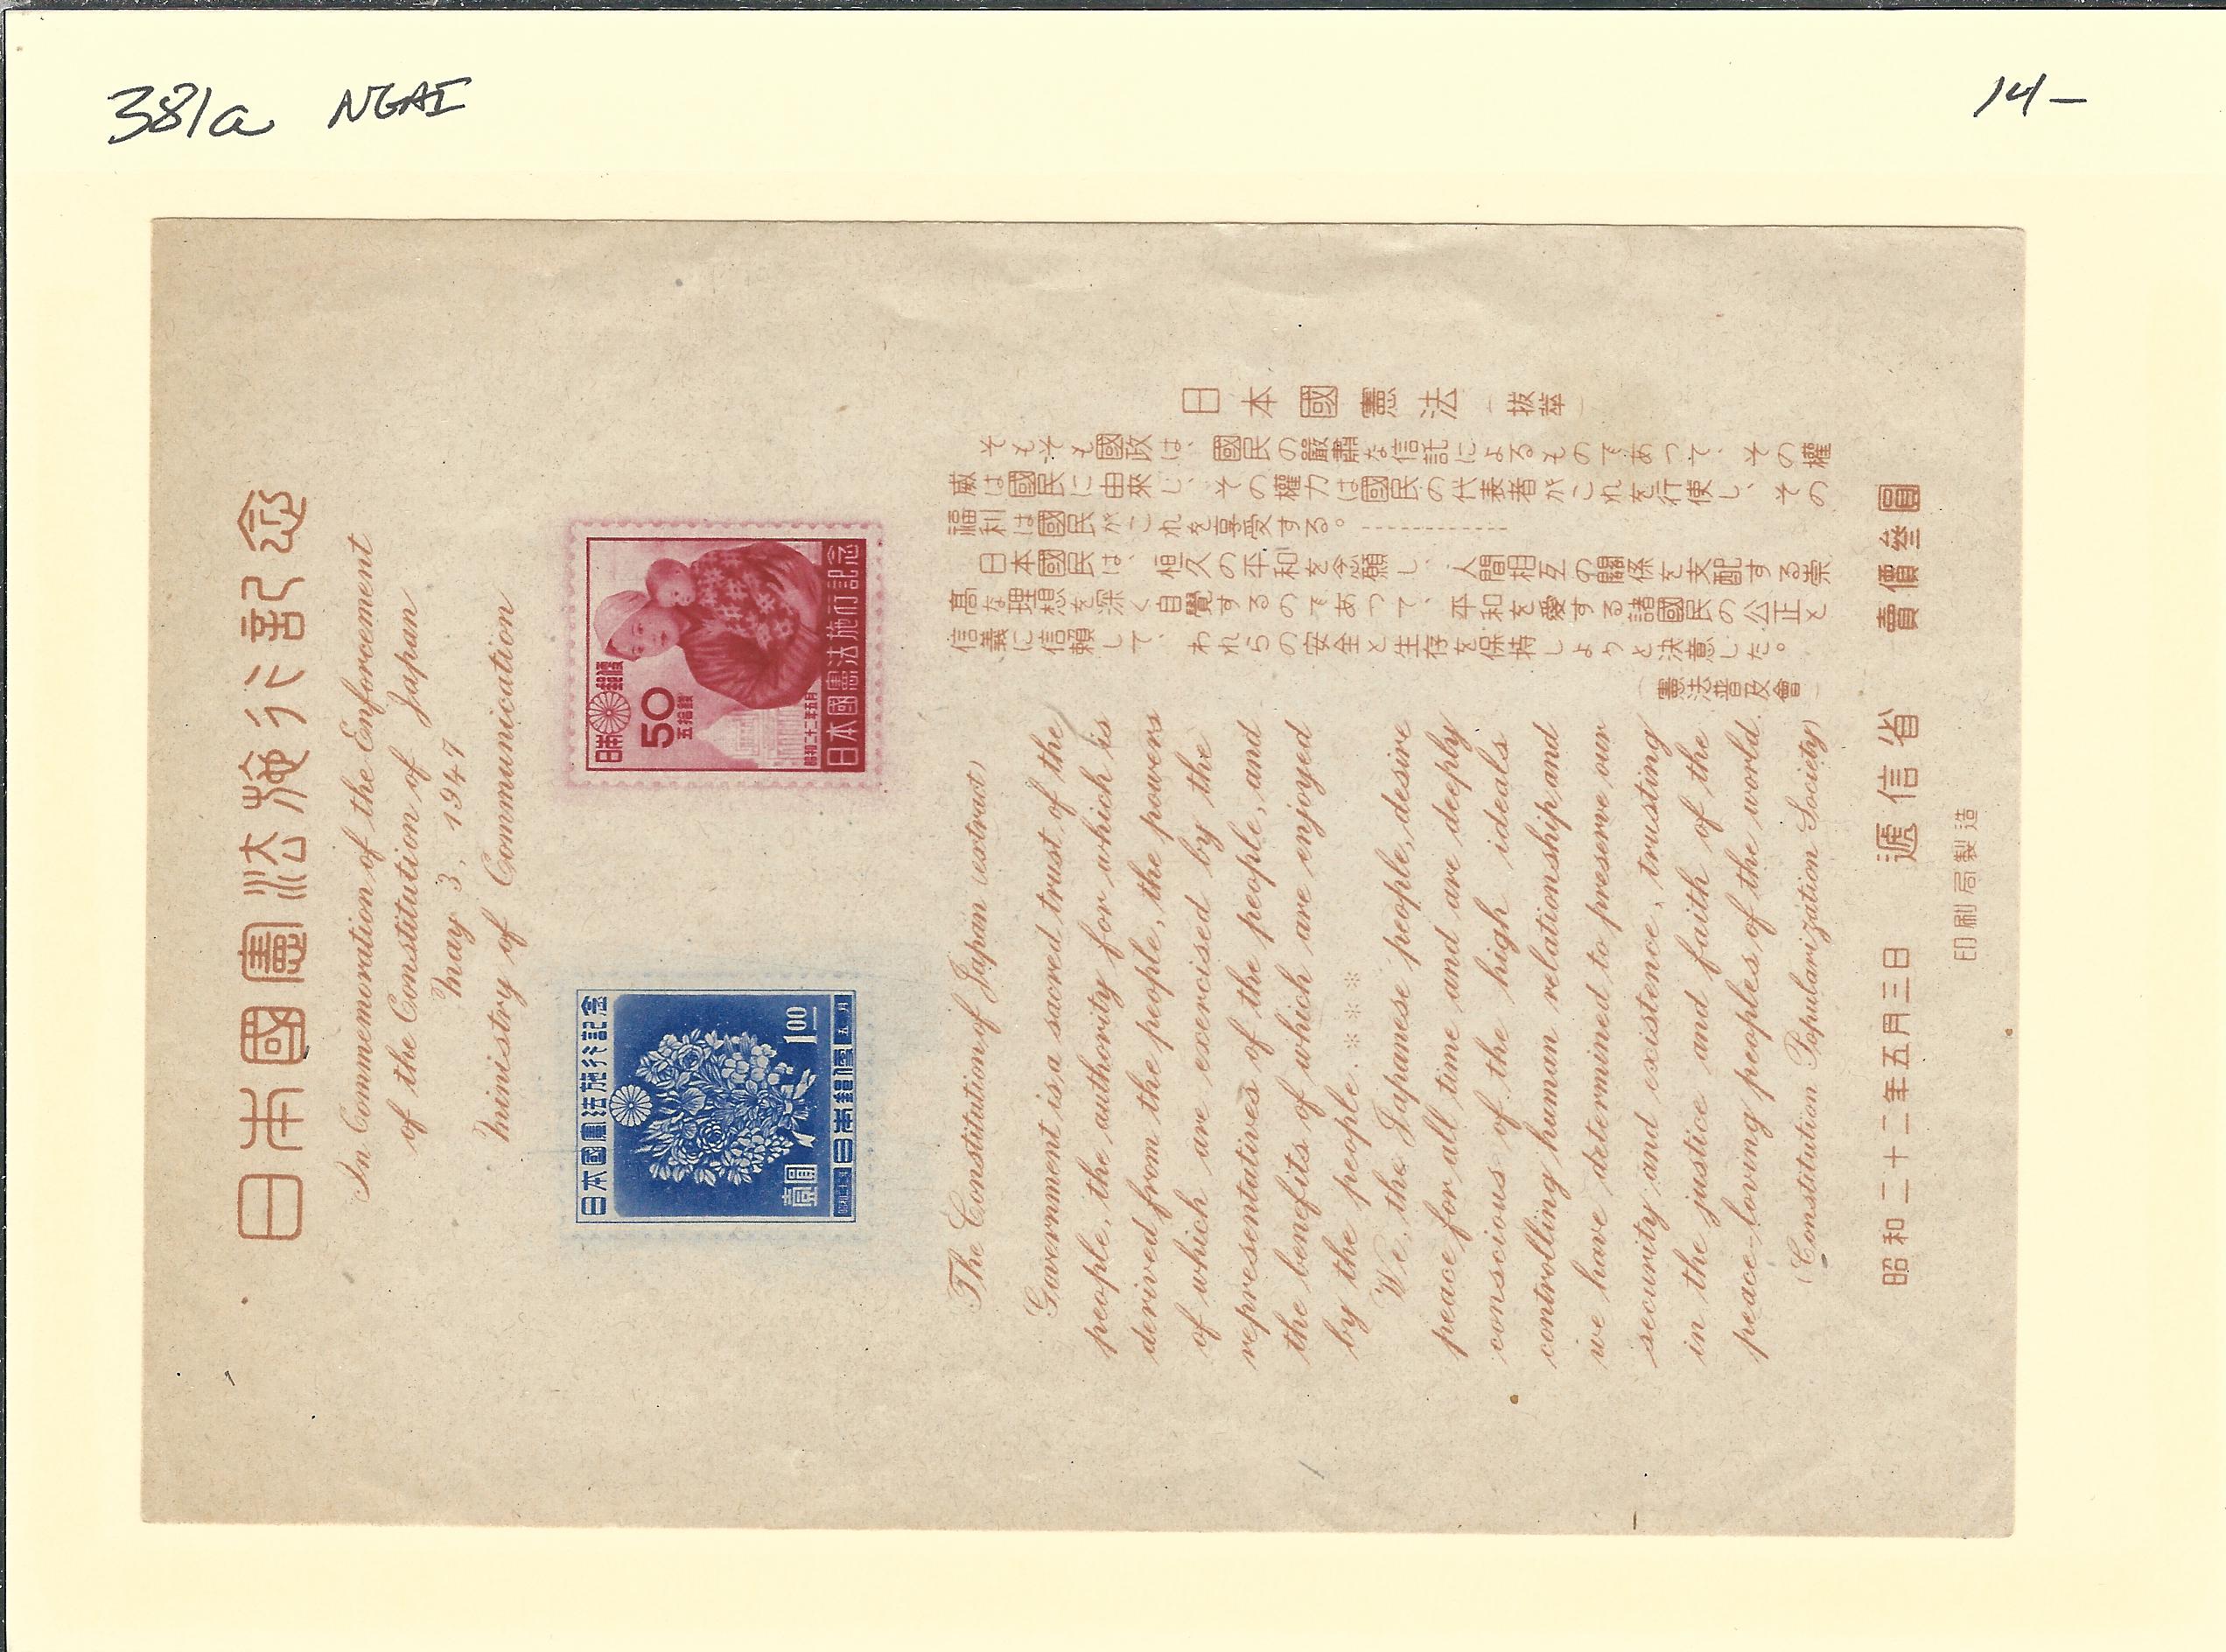 381a NGAI
14-
日本國憲法施行記念
In Commemoration of the Enforcement
of the Constitution of Japan
May 3, 1947
Ministry of Communication
日本國憲法施行記念
壹圓
1.00
日本郵便
日本郵便
50
五拾錢
昭和二十二年五月
日本國憲法施行記念
The Constitution of Japan (extract)
Government is a sacred trust of the
people, the authority for which is
derived from the people, the powers
of which are exercised by the
representatives of the people, and
the benefits of which are enjoyed
by the people. * * * *
We, the Japanese people, desire
peace for all time and are deeply
conscious of the high ideals
controlling human relationship, and
we have determined to preserve our
security and existence, trusting
in the justice and faith of the
peace-loving peoples of the world.
(Constitution Popularization Society)
日本國憲法(抜萃)
そもそも國政は、國民の嚴肅な信託によるものであつて、その權
威は國民に由來し、その權力は國民の代表者がこれを行使し、その
福利は國民がこれを享受する。------------
日本國民は、恒久の平和を念願し、人間相互の關係を支配する崇
高な理想を深く自覺するのであつて、平和を愛する諸國民の公正と
信義に信賴して、われらの安全と生存を保持しようと決意した。
(憲法普及會)
昭和二十二年五月三日 遞信省 賣價參圓
印刷局製造